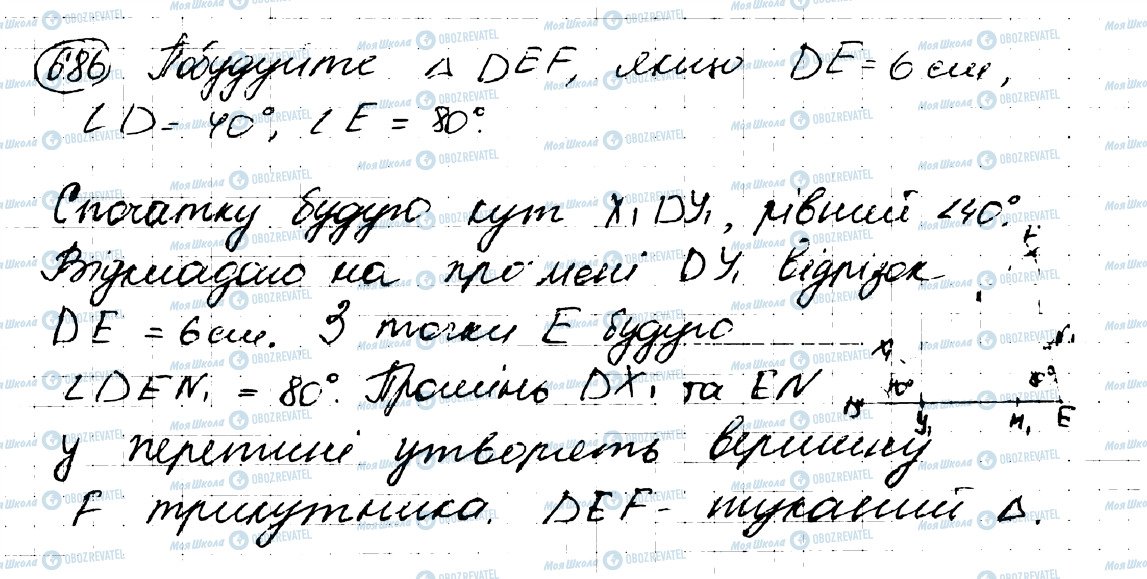 686 Побудуйте △ DEF, якщо DE = 6 см,
∠D = 40°, ∠E = 80°.
Спочатку будую кут X₁DY₁, рівний ∠40°.
Відкладаю на промені DY₁ відрізок
DE = 6 см. З точки E будую
∠DEN₁ = 80°. Промінь DX₁ та EN
у перетині утворять вершину
F трикутника. DEF - шуканий △.
F
X₁ N₁
40°
D Y₁ M₁ E
Моя Школа OBOZREVATEL